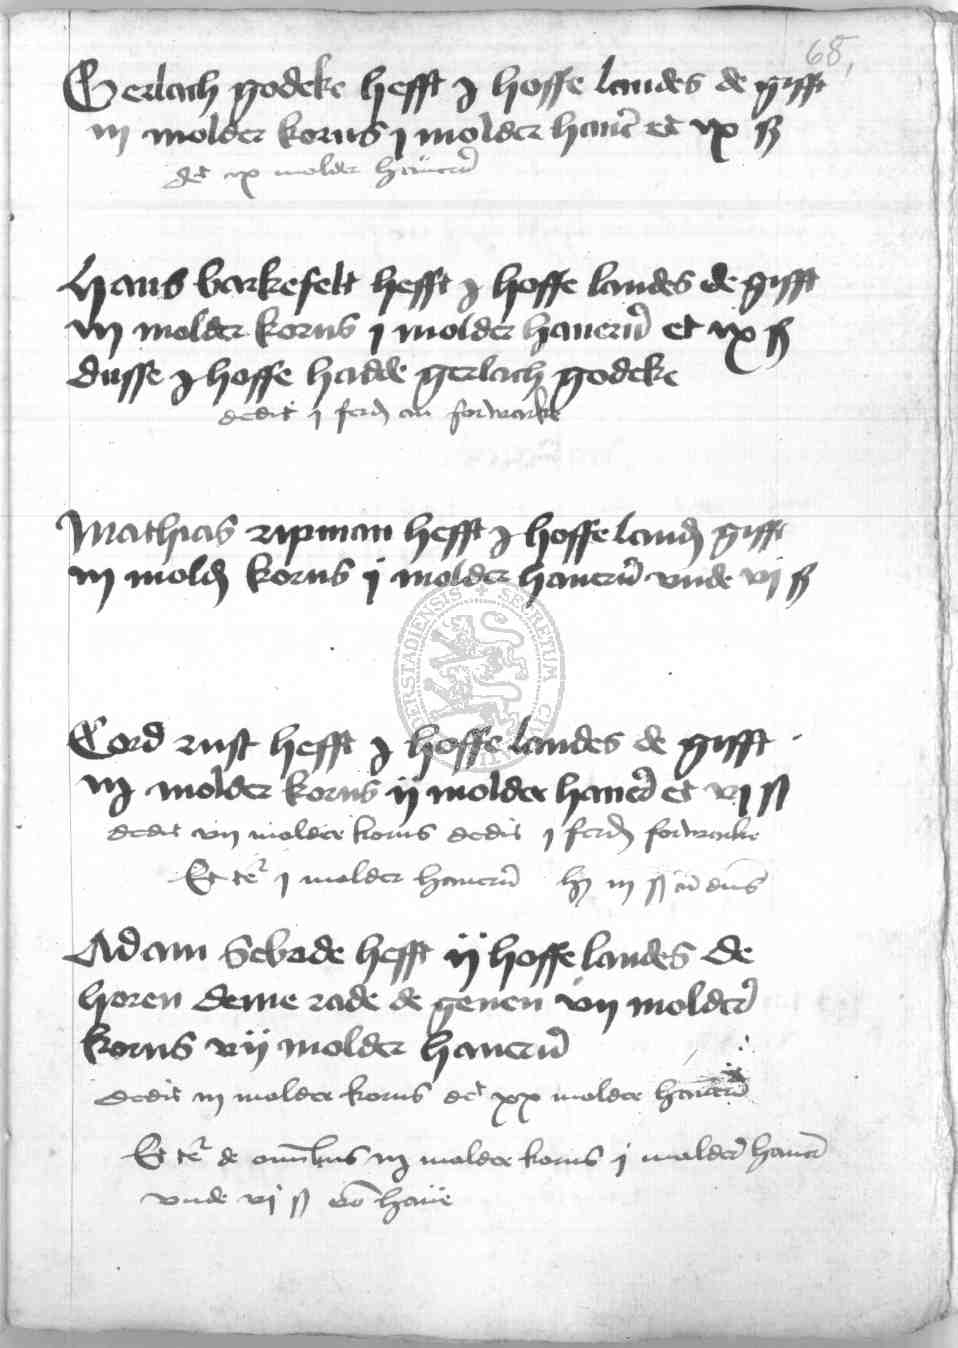 68,
Gerlach godeke hefft j hoffe landes de gifft
iij molder korns j molder haver et ix ß
det ix molder haveren
Hans barkefelt hefft j hoffe landes de gifft
iij molder korns j molder haveren et ix ß
dusse j hoffe hadde gerlach godeke
dedit j ferd an forwarke
Mathias ripman hefft j hoffe land gifft
iij mold korns j molder haveren vnde vj ß
Cord rust hefft j hoffe landes de gifft
iij molder korns ij molder haver et vj ß
dedit vij molder korns dedit j ferd forwarke
Et te j molder haveren iij ß
Adam Sebode hefft ij hoffe landes de
horen deme rade de geuen vij molder
korns vij molder haveren
dedit iij molder korns det xx molder haveren
Et te de omnibus iij molder korns j molder haver
vnde vj ß
SECRETUM